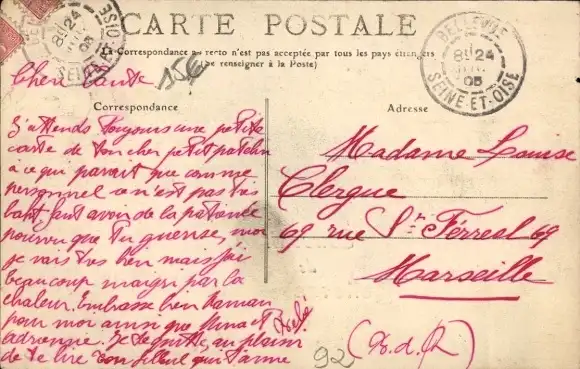 CARTE POSTALE
La Correspondance au recto n'est pas acceptée par tous les pays étrangers
(Se renseigner à la Poste)
BELLEVUE
8E 24
05
SEINE-ET-OISE
15€
Chère tante
Correspondance
Adresse
J'attends toujours une petite
carte de ton cher petit patelin
à ce qui parait que comme
personnel ce n'est pas très
faut avoir de la patience
pourvu que tu guérisse, moi
je vais très bien mais j'ai
beaucoup maigri par la
chaleur. Embrasse bien Maman
pour moi ainsi que Nina et
Adrienne. Je te quitte, au plaisir
de te lire ton filleul qui t'aime
Madame Louise
Clergue
69 rue St Ferreol 69
Marseille
(B. d. R)
92